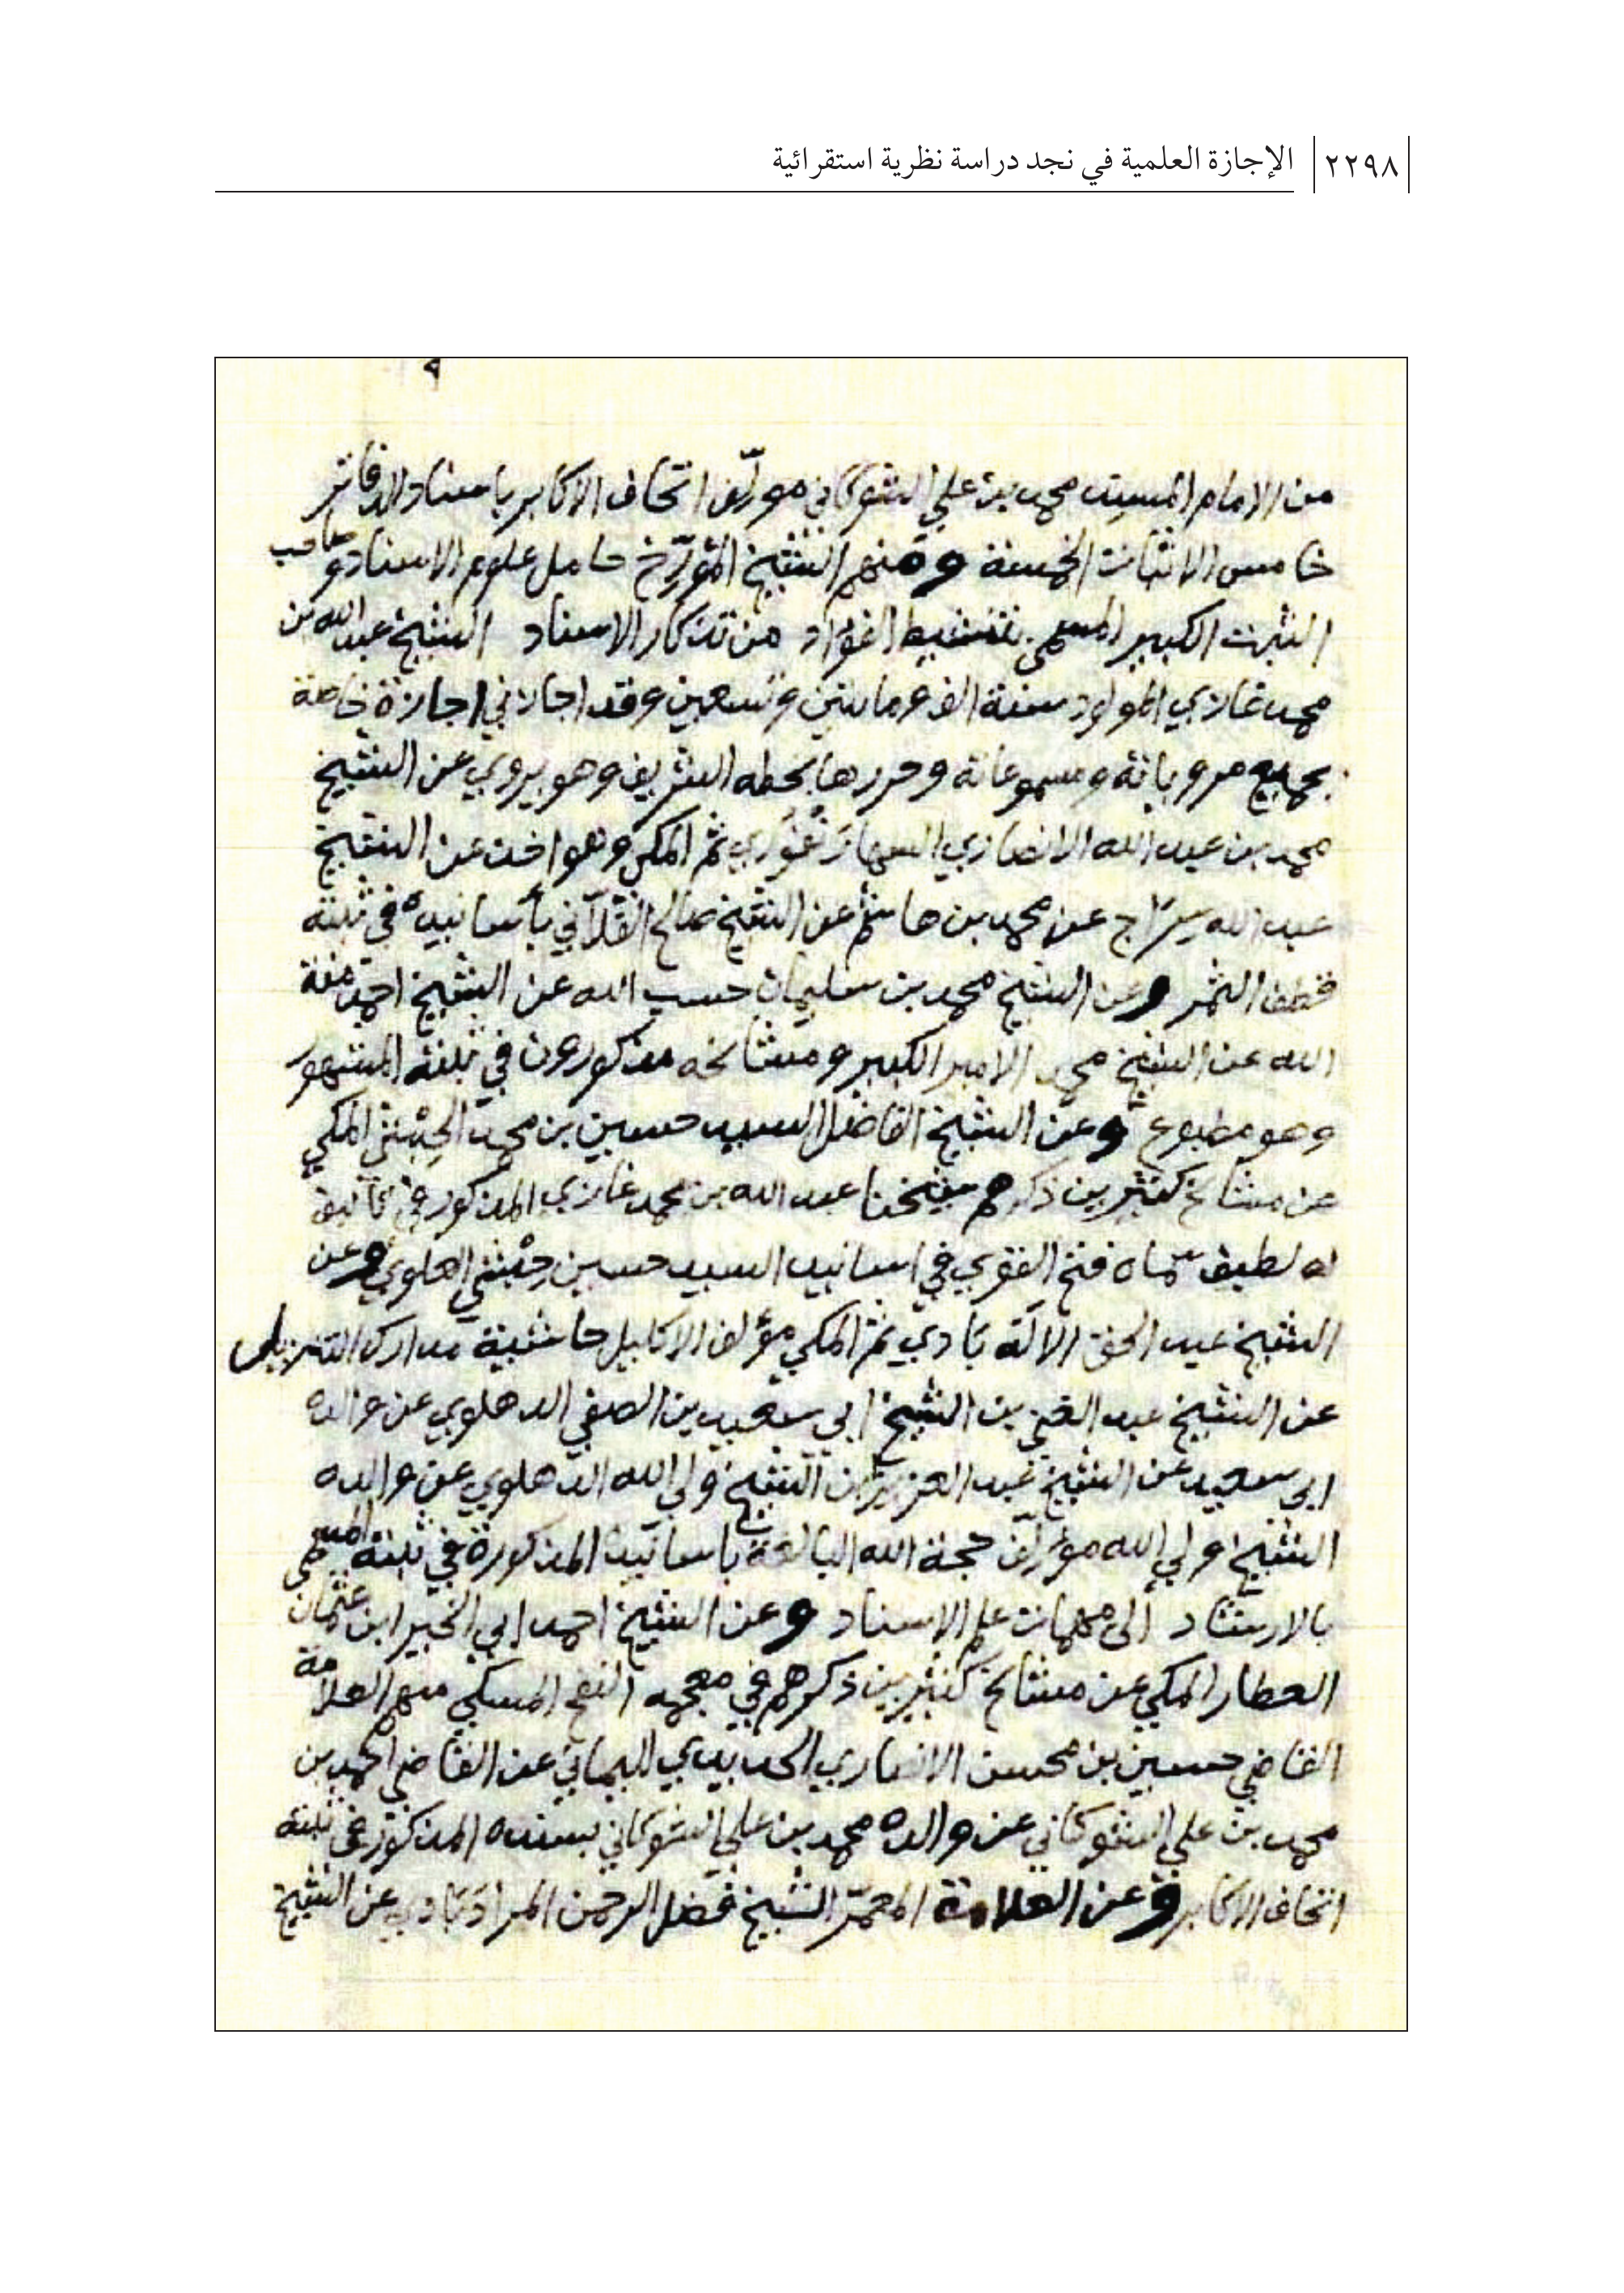 ٢٢٩٨ الإجازة العلمية في نجد دراسة نظرية استقرائية
٩
من الامام المسند محمد بن علي الشوكاني مؤلّف اتحاف الاكابر باسناد الدفاتر
خامس الاثبات الخمسة ومنهم الشيخ المؤرّخ حامل علوم الاسناد وصاحب
الثبت الكبير المسمى بتنشيط الفؤاد من تذكار الاسناد الشيخ عبد الله بن
محمد غازي المولود سنة الف ومائتين وتسعين وقد اجازني اجازة خاصة
بجميع مروياته ومسموعاته وحررها بخطه الشريف وهو يروي عن الشيخ
محمد بن عبد الله الانصاري السهارنفوري ثم المكي وهو اخذ عن الشيخ
عبد الله سراج عن محمد بن هاشم عن الشيخ صالح الفلاّني بأسانيده في ثبته
قطف الثمر وعن الشيخ محمد بن سليمان حسب الله عن الشيخ احمد منة
الله عن الشيخ محمد الامير الكبير ومشائخه مذكورون في ثبته المشهور
وهو مطبوع وعن الشيخ الفاضل السيد حسين بن محمد الحِبْشي المكي
عن مشائخ كثيرين ذكرهم شيخنا عبد الله بن محمد غازي المذكور في تأليف
له لطيف سماه فتح القوي في اسانيد السيد حسين حِبْشي العلوي وعن
الشيخ عبد الحق الالّه بَادي ثم المكي مؤلف الاكليل حاشية مدارك التنزيل
عن الشيخ عبد الغني بن الشيخ ابي سعيد بن الصفي الدهلوي عن والده
ابي سعيد عن الشيخ عبد العزيز بن الشيخ ولي الله الدّهلوي عن والده
الشيخ ولي الله مؤلّف حجة الله البالغة باسانيده المذكورة في ثبته المسمى
بالارشاد الى مهمات علم الاسناد وعن الشيخ احمد ابي الخير ابن عثمان
العطار المكي عن مشائخ كثيرين ذكرهم في معجمه النفح المسكي منهم العلامة
القاضي حسين بن محسن الانصاري الحديدي اليماني عن القاضي احمد بن
محمد بن علي الشوكاني عن والده محمد بن علي الشوكاني بسنده المذكور في ثبته
اتحاف الاكابر وعن العلامة المعمّر الشيخ فضل الرحمن المرادبَادي عن الشيخ